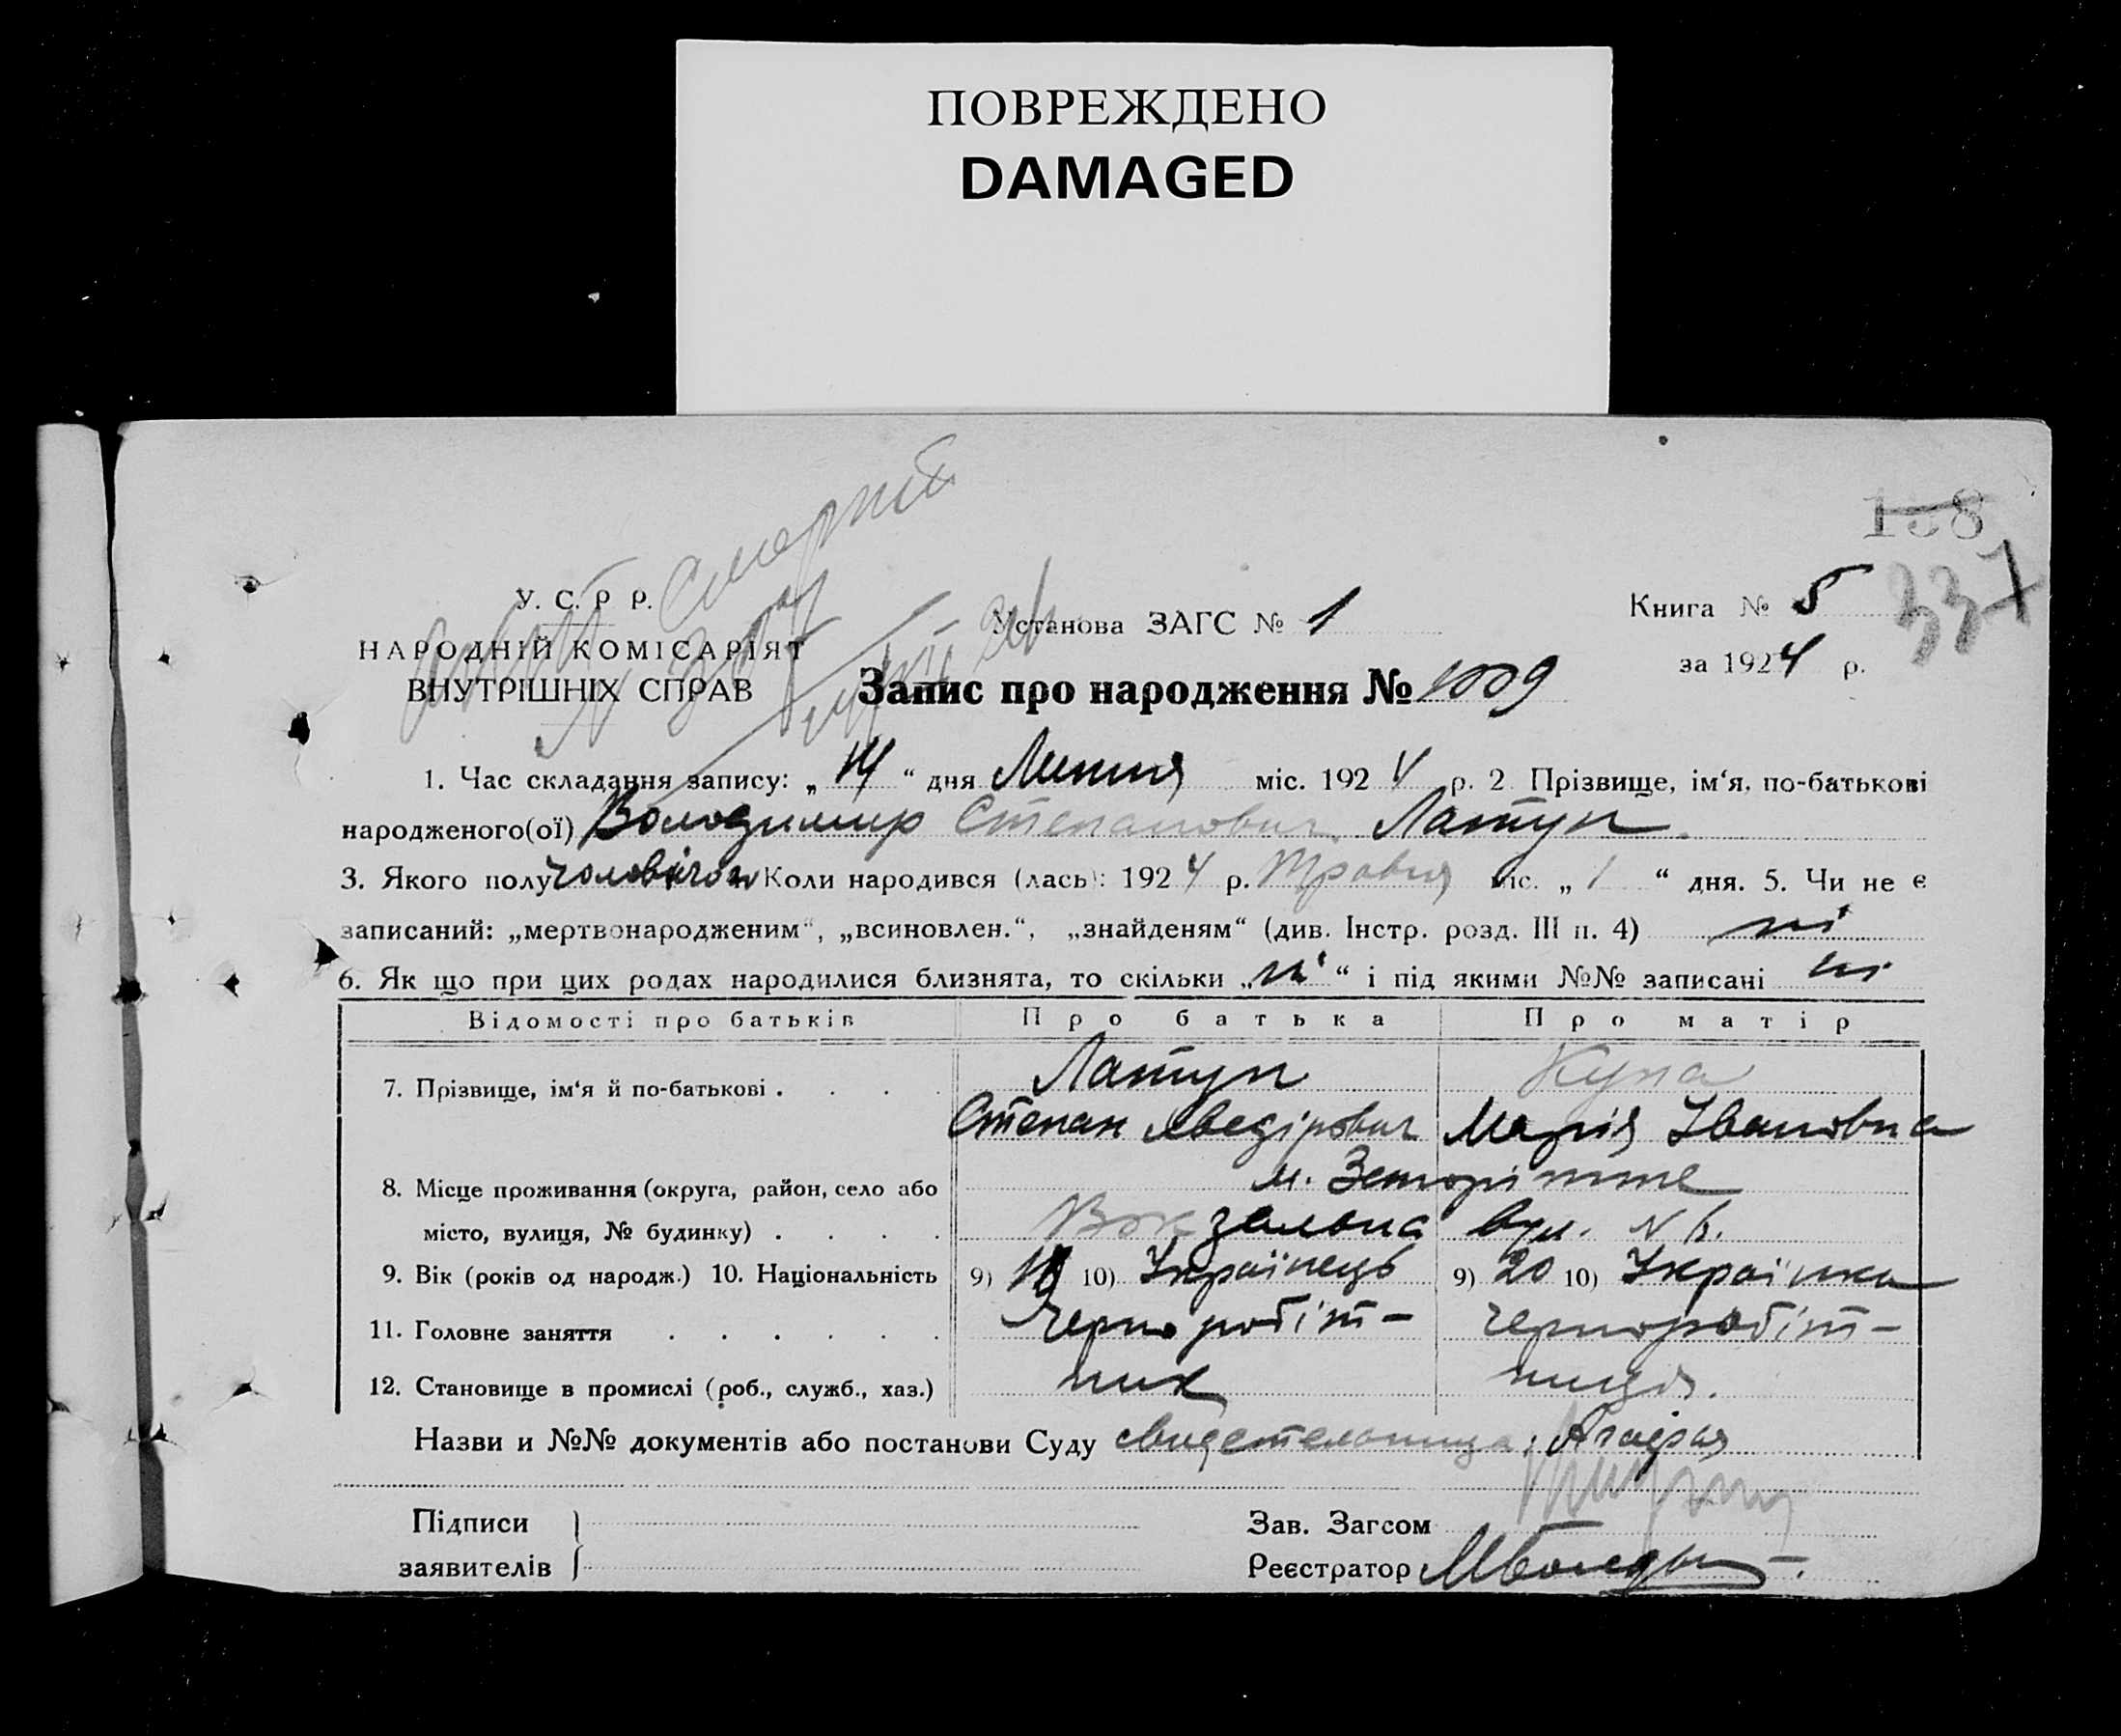 ПОВРЕЖДЕНО
DAMAGED
138
337
смерті
У. С. Р Р.
НАРОДНІЙ КОМІСАРІЯТ
ВНУТРІШНІХ СПРАВ
Установа ЗАГС № 1
Книга № 5
за 1924 р.
Запис про народження № 1009
1. Час складання запису: „ 14 “ дня Липня міс. 1924 р. 2 Прізвище, ім‘я, по-батькові
народженого(ої) Володимир Степанович Латун.
3. Якого полу чоловічого Коли народився (лась): 1924 р. Травня міс. „ 1 “ дня. 5. Чи не є
записаний: „мертвонародженим“, „всиновлен.“, „знайденям“ (див. Інстр. розд. III п. 4) ні
6. Як що при цих родах народилися близнята, то скільки „ ні “ і під якими №№ записані ні
Відомості про батьків Про батька Про матір
7. Прізвище, ім‘я й по-батькові . . . . Латун Купа
Степан Марія Івановна
8. Місце проживання (округа, район, село або м.
місто, вулиця, № будинку) . . . . Вокзальна вул. N
9. Вік (років од народж.) 10. Національність 9) 10) Українець 9) 20 10) Українка
11. Головне заняття . . . . . . Чернoробіт- чернoробіт-
12. Становище в промислі (роб., служб., хаз.) ник ниця.
Назви и №№ документів або постанови Суду
Підписи
заявителів
Зав. Загсом
Реєстратор